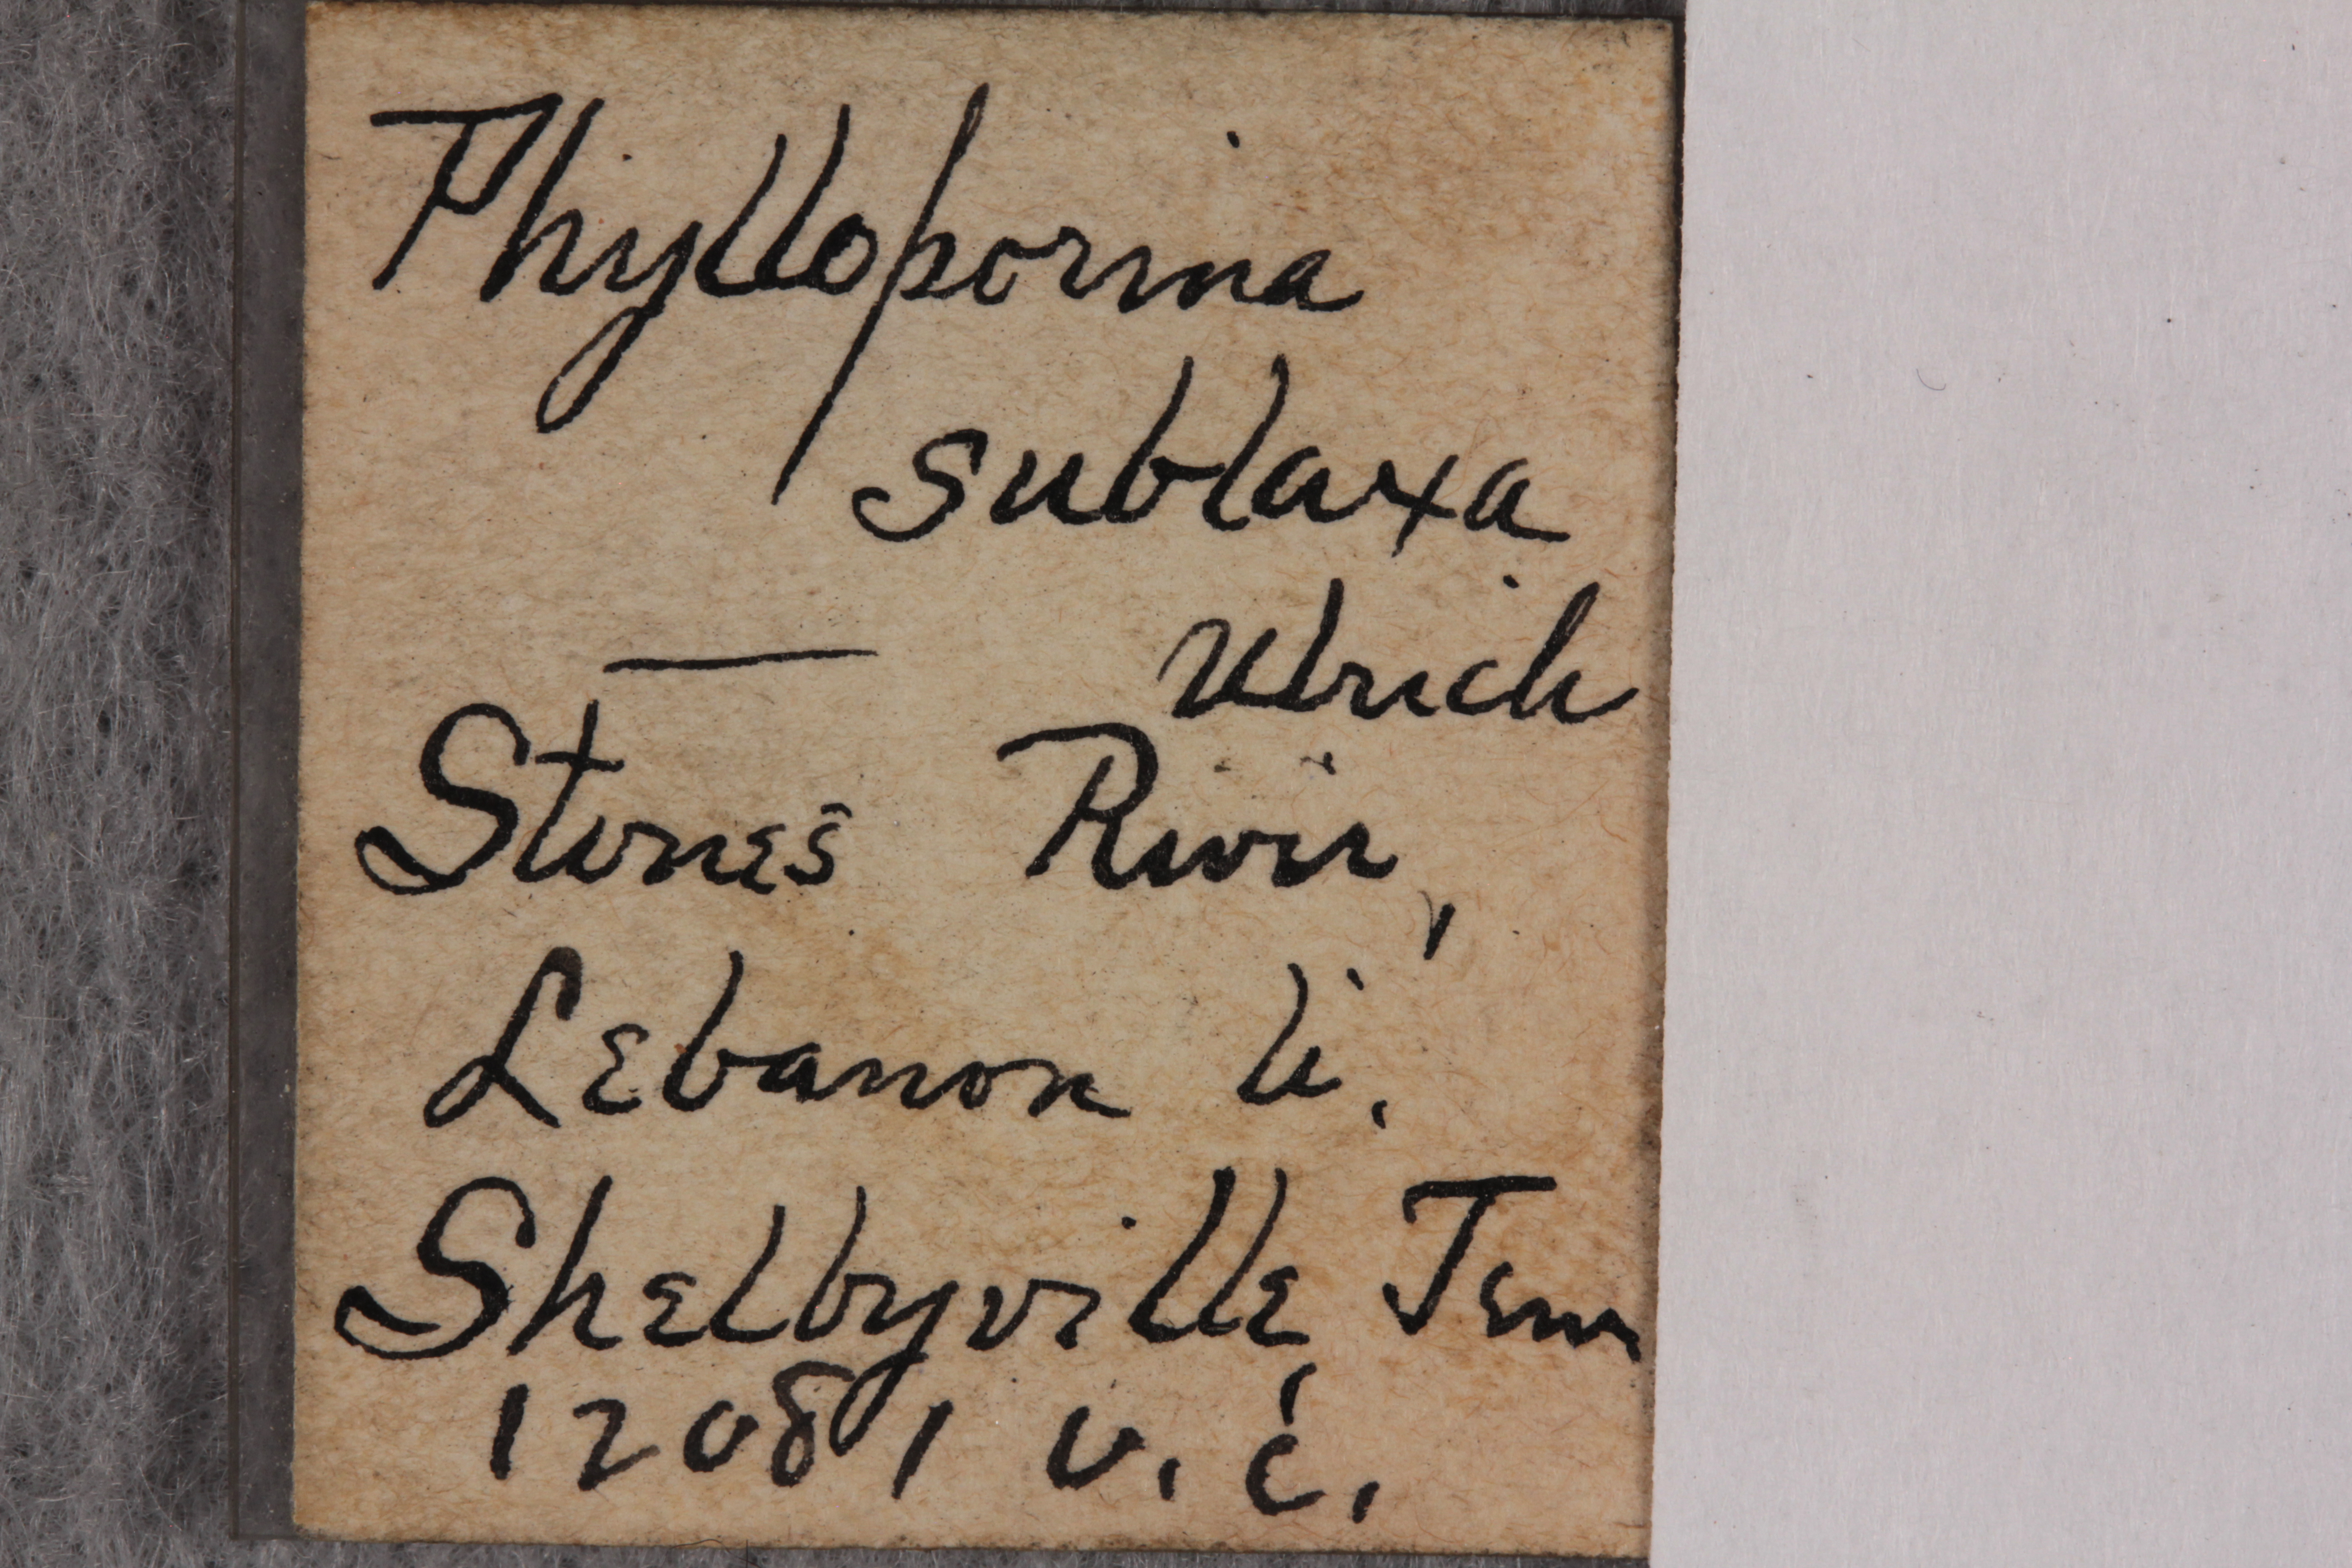 Phylloporina
sublaxa
— Ulrich
Stones River,
Lebanon li.
Shelbyville, Tenn
12081 U.C.